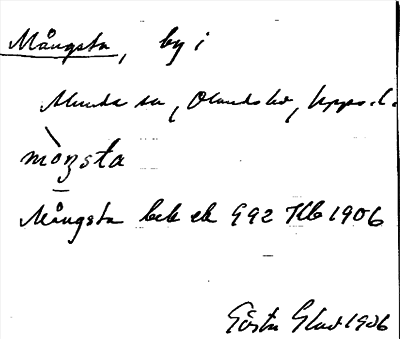 Mångsta, by i
Alunda sn, Olands hd, Upps. l.
mòŋsta
Mångsta bek ek 992 Hb 1906
Gösta Glad 1906